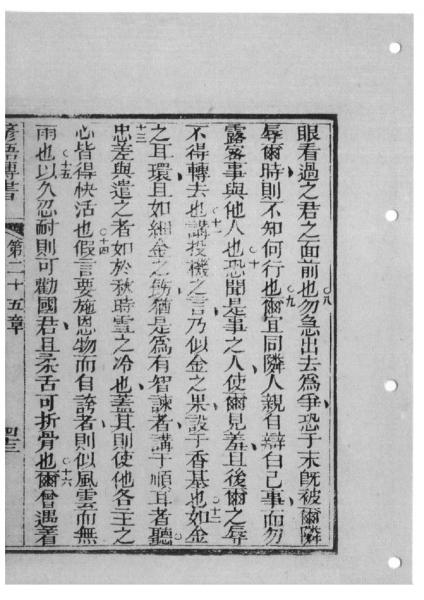 眼看過之君之面前也八勿急出去爲爭恐于末既被爾隣
辱爾時則不知何行也九爾宜同隣人親自辯白己事而勿
露密事與他人也十恐聞是事之人使爾見羞且後爾之辱
不得轉去也十一講投機之言乃似金之果設于香基也十二如金
之耳環且如細金之飭猶是爲有智諫者講于順耳者聽
十三忠差與遣之者如於秋時雪之冷也蓋其則使他各主之
心皆得快活也十四假言要施恩物而自誇者則似風雲而無
雨也十五以久忍耐則可勸國君且柔舌可折骨也十六爾曾遇着
諺語傳書 第二十五章